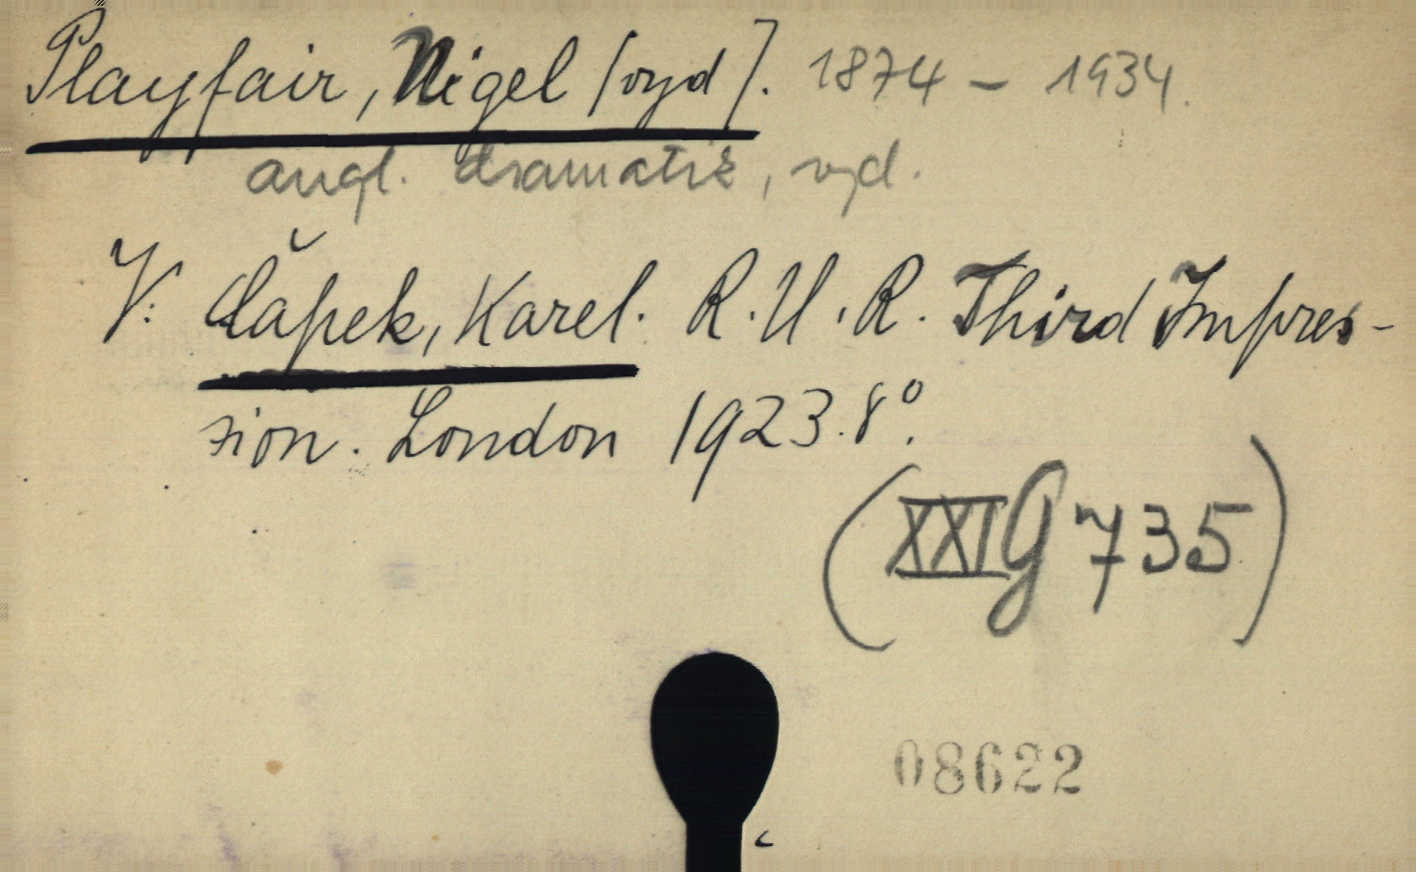 Playfair, Nigel [vyd]. 1874 – 1934.
angl. dramatik, vyd.
V: Čapek, Karel. R.U.R. Third Impres-
sion. London 1923. 8°.
(XXI G 735)
08622